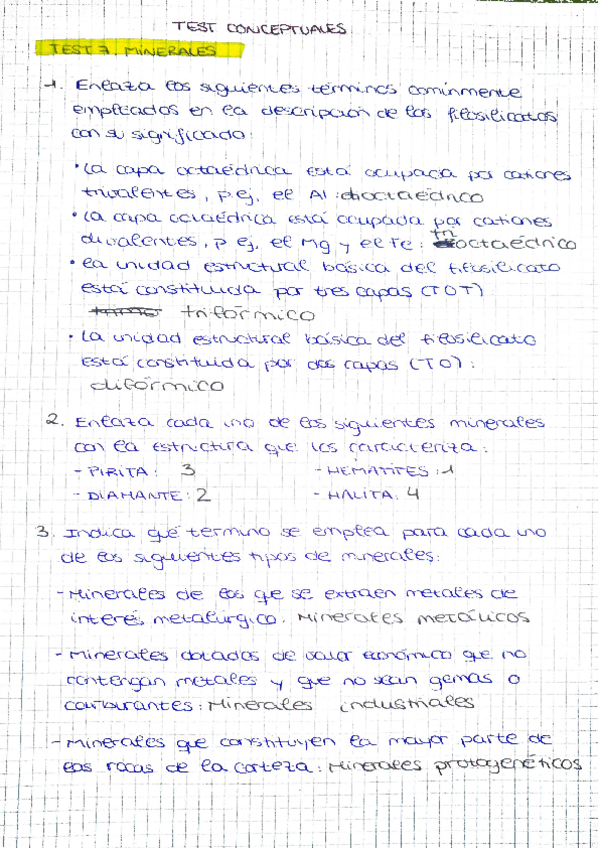 TEST CONCEPTUALES
TEST 7. MINERALES
1. Enlaza los siguientes términos comúnmente
empleados en la descripción de los filosilicatos
con su significado:
• La capa octaédrica está ocupada por cationes
trivalentes, p.ej, el Al: dioctaédrico
• La capa octaédrica está ocupada por cationes
divalentes, p ej, el Mg y el Fe: trioctaédrico
• La unidad estructural básica del filosilicato
está constituida por tres capas (TOT)
trifórmico
• La unidad estructural básica del filosilicato
está constituida por dos capas (TO):
difórmico
2. Enlaza cada uno de los siguientes minerales
con la estructura que los caracteriza:
- PIRITA: 3 - HEMATITES: 1
- DIAMANTE: 2 - HALITA: 4
3. Indica qué término se emplea para cada uno
de los siguientes tipos de minerales:
- Minerales de los que se extraen metales de
interés metalúrgico. Minerales metálicos
- Minerales dotados de valor económico que no
contengan metales y que no sean gemas o
carburantes: Minerales industriales
- Minerales que constituyen la mayor parte de
las rocas de la corteza: Minerales protogenéticos